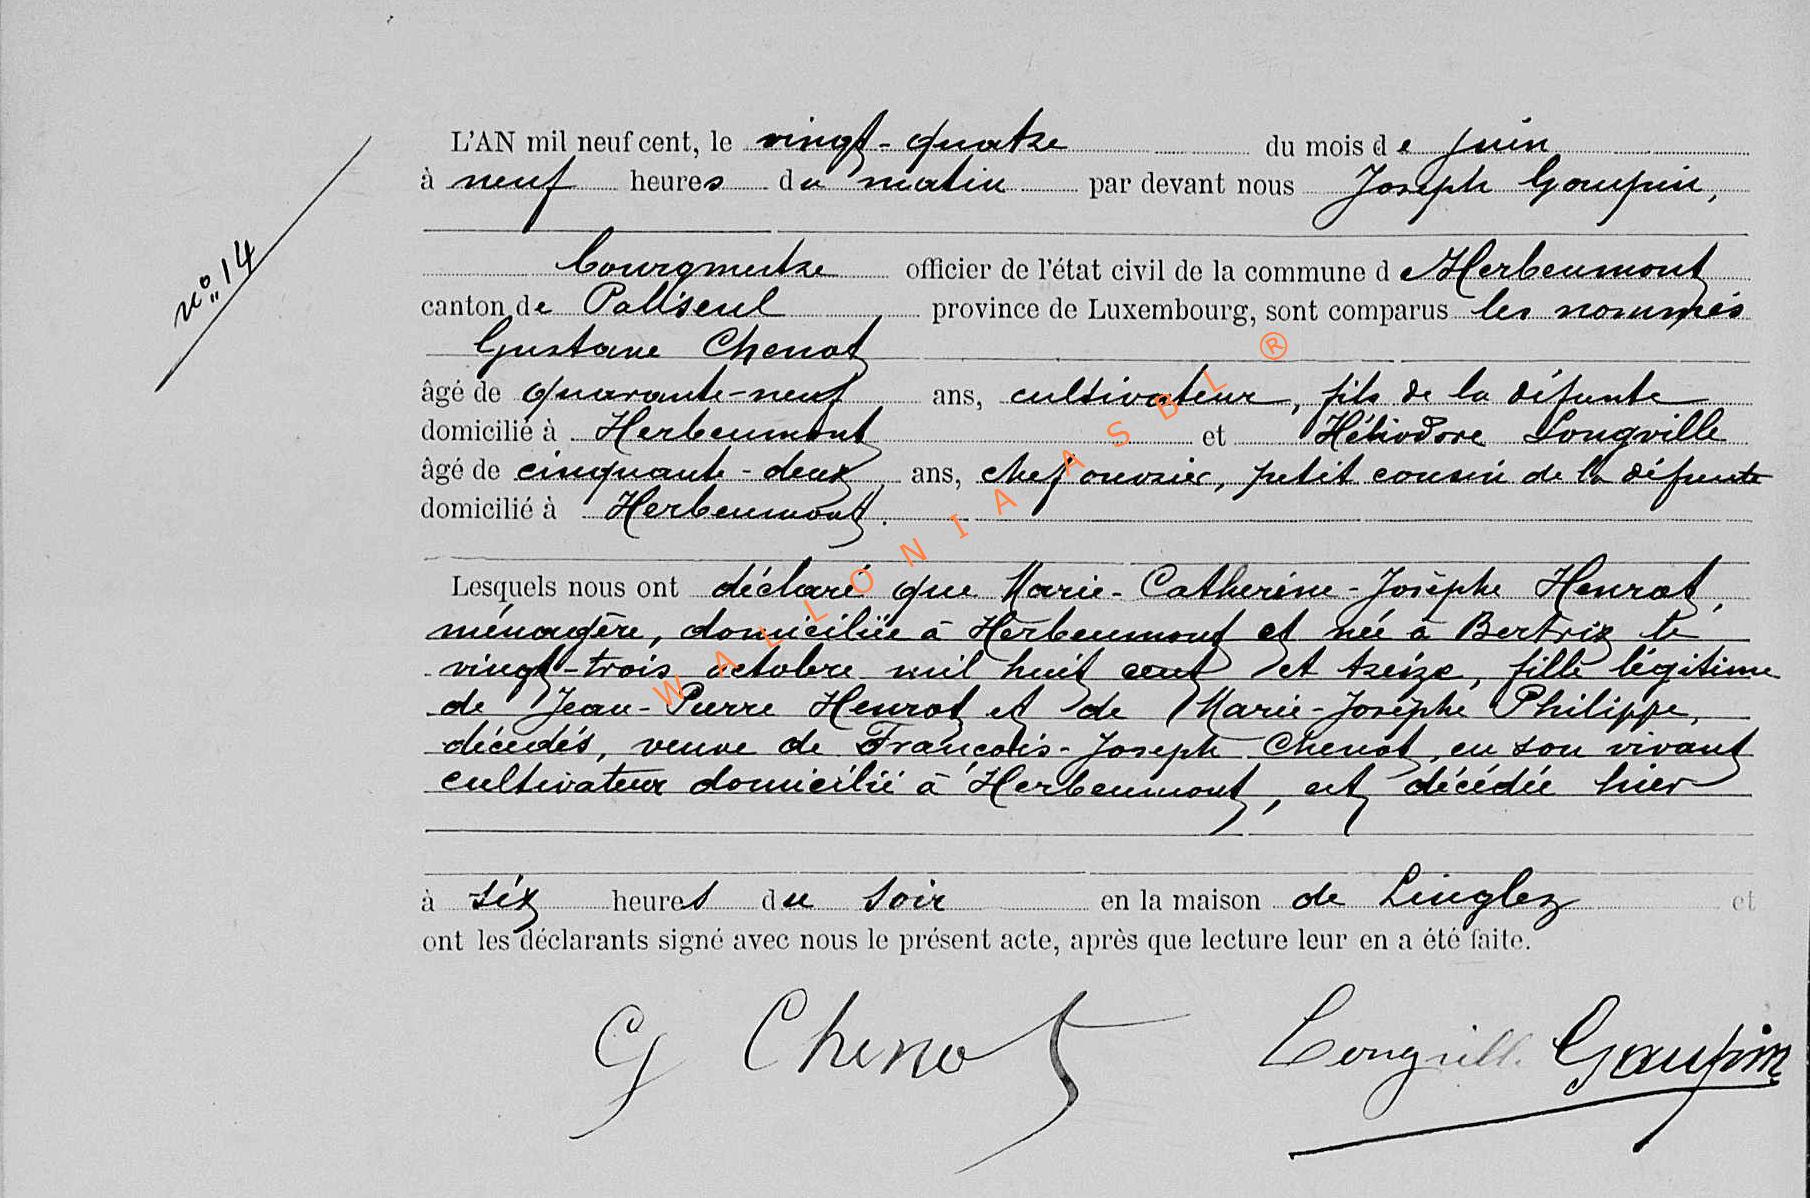 n° 14
L'AN mil neuf cent, le vingt-quatre du mois de juin
à neuf heures du matin par devant nous Joseph Goupin,
bourgmestre officier de l'état civil de la commune d Herbeumont
canton de Paliseul province de Luxembourg, sont comparus les nommés
Gustave Chenot
âgé de quarante-neuf ans, cultivateur, fils de la défunte
domicilié à Herbeumont et Héliodore Longville
âgé de cinquante-deux ans, chef ouvrier, petit cousin de la défunte
domicilié à Herbeumont.
Lesquels nous ont déclaré que Marie-Catherine-Josèphe Henrot,
ménagère, domiciliée à Herbeumont et née à Bertrix le
vingt-trois octobre mil huit cent et treize, fille légitime
de Jean-Pierre Henrot et de Marie-Josèphe Philippe,
décédés, veuve de François-Joseph Chenot en son vivant
cultivateur domicilié à Herbeumont, est décédée hier
à six heures du soir en la maison de Linglez et
ont les déclarants signé avec nous le présent acte, après que lecture leur en a été faite.
G Chenot Longville Goupin
WALLONIA ASBL ®